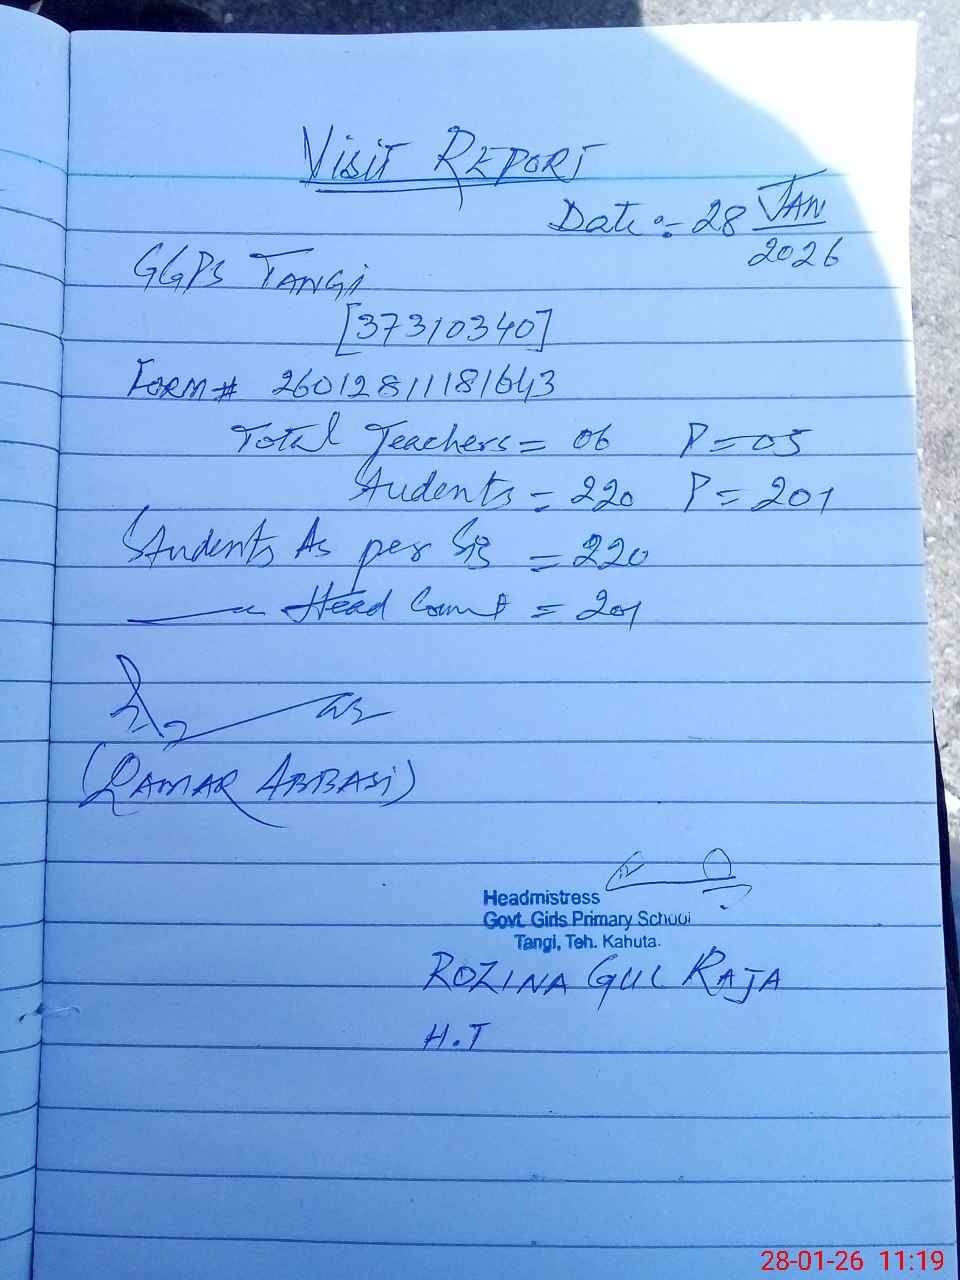 Visit REPORT
Date :- 28 JAN
2026
GGPS TANGi
[37310340]
FORM# 26012811181643
Total Teachers = 06 P = 05
Students = 220 P = 201
Students As per SIS = 220
Head Count = 201
(QAMAR ABBASi)
Headmistress
Govt. Girls Primary School
Tangi, Teh. Kahuta.
ROZINA GUL RAJA
H.T
28-01-26 11:19